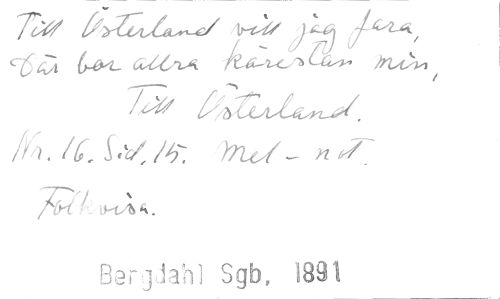 Till Österland vill jag fara,
Där bor allra kärestan min,
Till Österland.
Nr. 16. Sid. 15. Mel-not.
Folkvisa.
Bergdahl Sgb, 1891